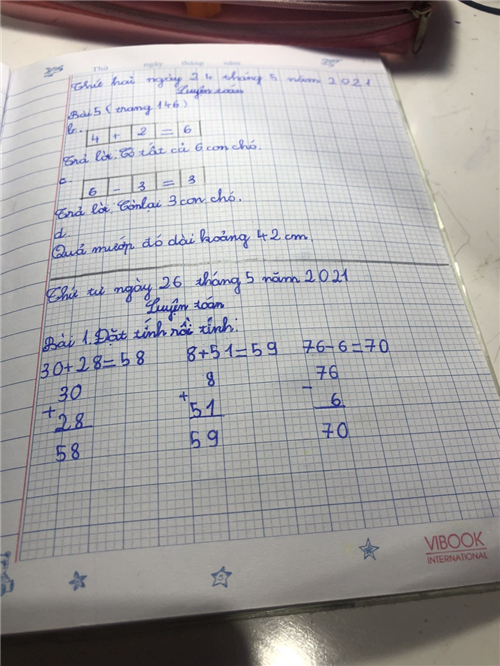 Thứ ngày tháng năm
Thứ hai ngày 24 tháng 5 năm 2021
Luyện toán
Bài 5 (trang 146)
b. 4 + 2 = 6
Trả lời: Có tất cả 6 con chó.
c. 6 - 3 = 3
Trả lời: Còn lại 3 con chó.
d.
Quả mướp đó dài khoảng 42 cm.
Thứ tư ngày 26 tháng 5 năm 2021
Luyện toán
Bài 1. Đặt tính rồi tính:
30+28=58 8+51=59 76-6=70
30 8 76
+ + -
28 51 6
58 59 70
VIBOOK
INTERNATIONAL